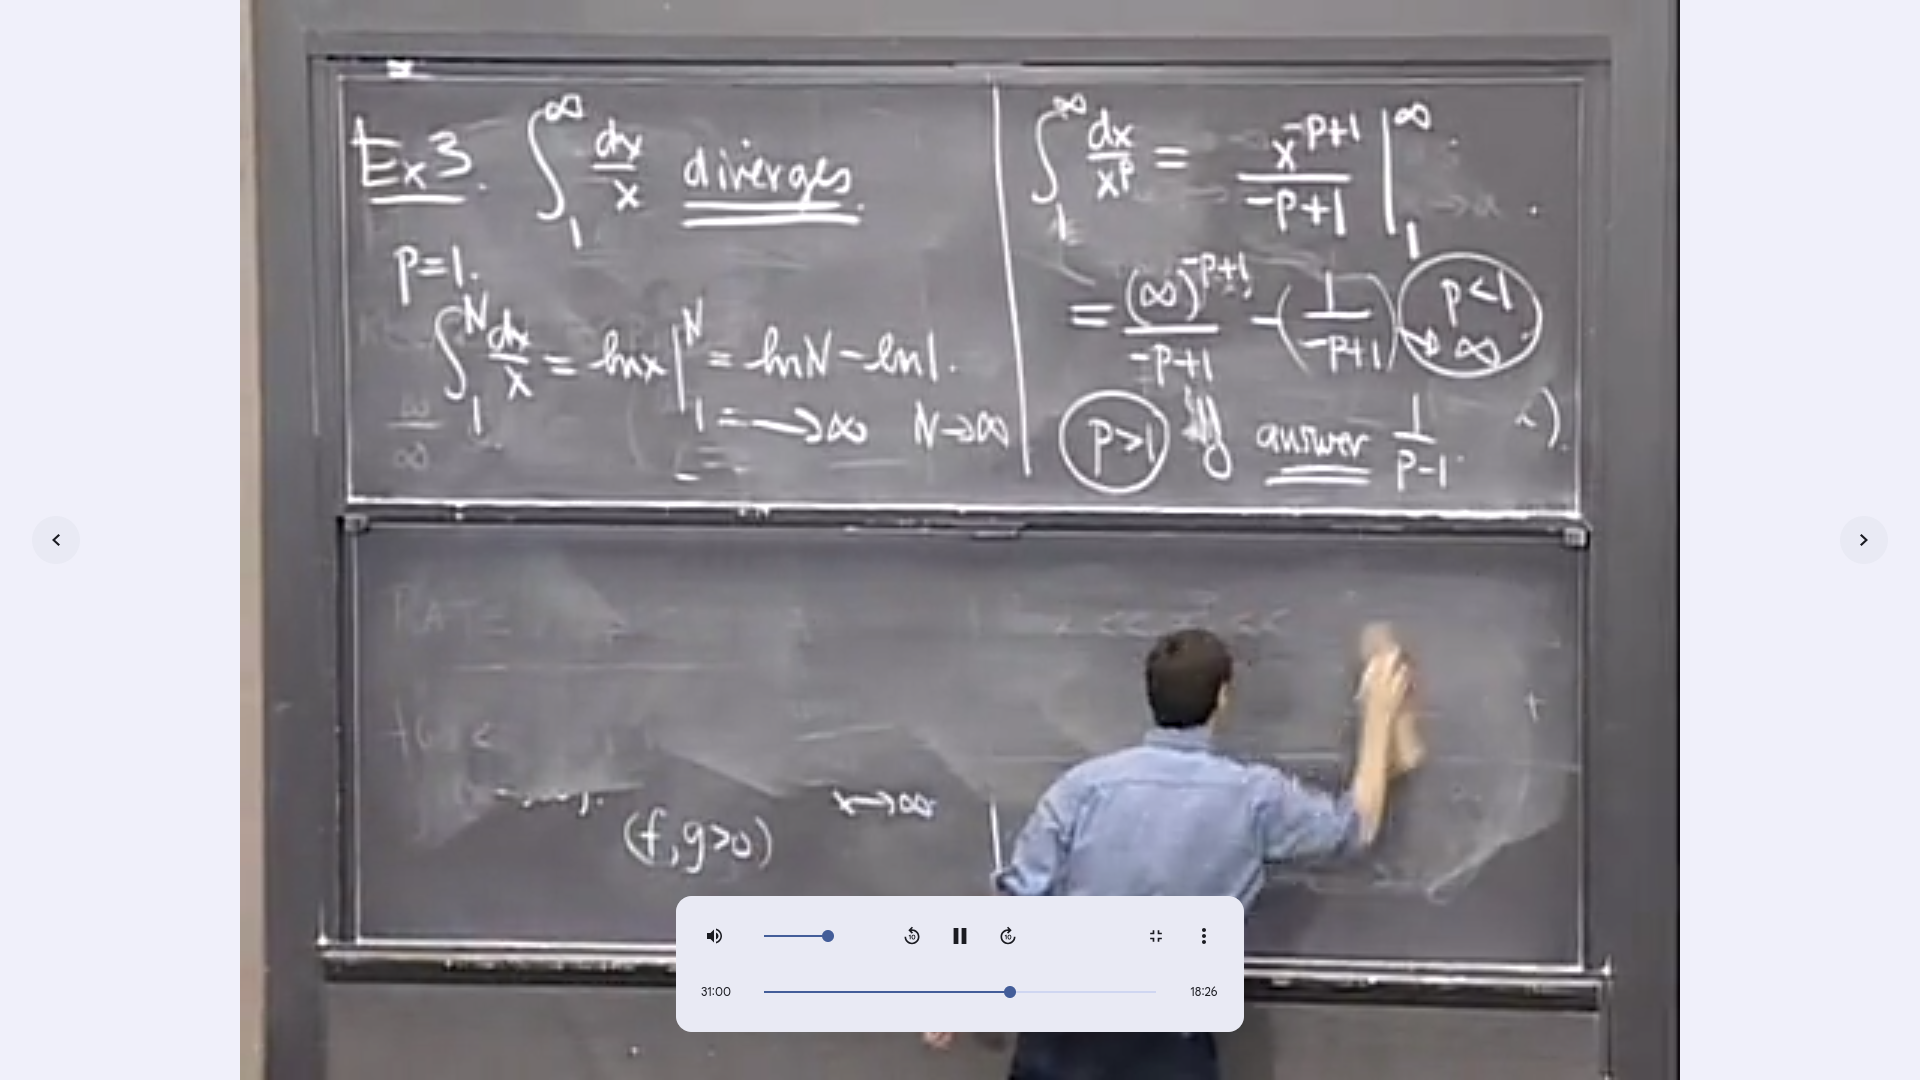 Ex3. ∫₁^∞ dx/x diverges.
P=1.
∫₁^N dx/x = ln x |₁^N = ln N - ln 1.
= → ∞ N→∞
∫₁^∞ dx/x^P = x^(-P+1)/(-P+1) |₁^∞
= (∞)^(-P+1)/(-P+1) - (1/(-P+1)) P<1 → ∞
P>1 answer 1/(P-1)
∞/∞
x→∞
(f,g>0)
31:00
18:26